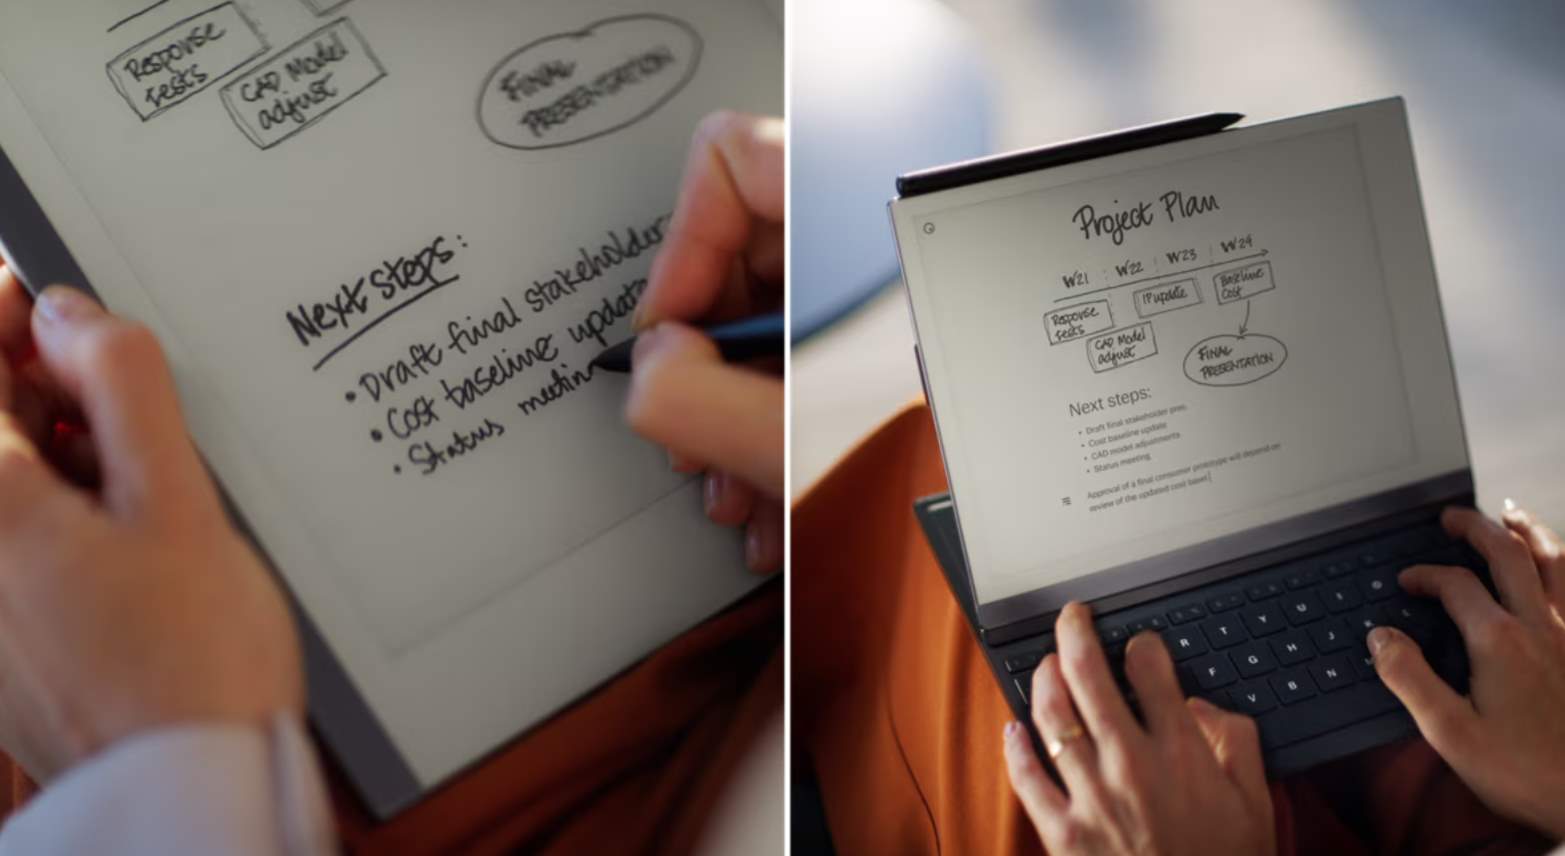 Response
Tests
CAD Model
adjust
FINAL
PRESENTATION
Next steps:
• Draft final stakeholder
• Cost baseline update
• Status meetin
Project Plan
W21 W22 W23 W24
Response
Tests
IP update
Baseline
Cost
CAD Model
adjust
FINAL
PRESENTATION
Next steps:
• Draft final stakeholder pres.
• Cost baseline update
• CAD model adjustments
• Status meeting
Approval of a final consumer prototype will depend on
review of the updated cost basel
R T Y U I O
F G H J K L
V B N M